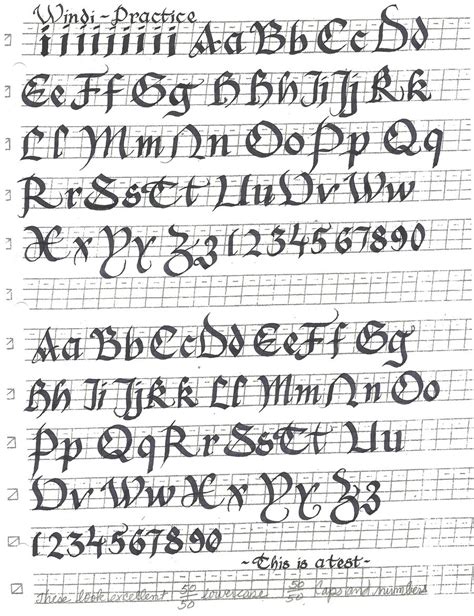 Windi-Practice
iiiiiiiii Aa Bb Cc Dd
Ee Ff Gg H Hh Ii Jj Kk
Ll Mm Nn Oo Pp Qq
Rr Ss Tt Uu Vv Ww
Xx Yy Zz 1234567890
Aa Bb Cc Dd Ee Ff Gg
Hh Ii Jj Kk Ll Mm Nn Oo
Pp Qq Rr Ss Tt Uu
Vv Ww Xx Yy Zz
1234567890
~This is a test~
These look excellent 50/50 lowercase 50/50 Caps and numbers